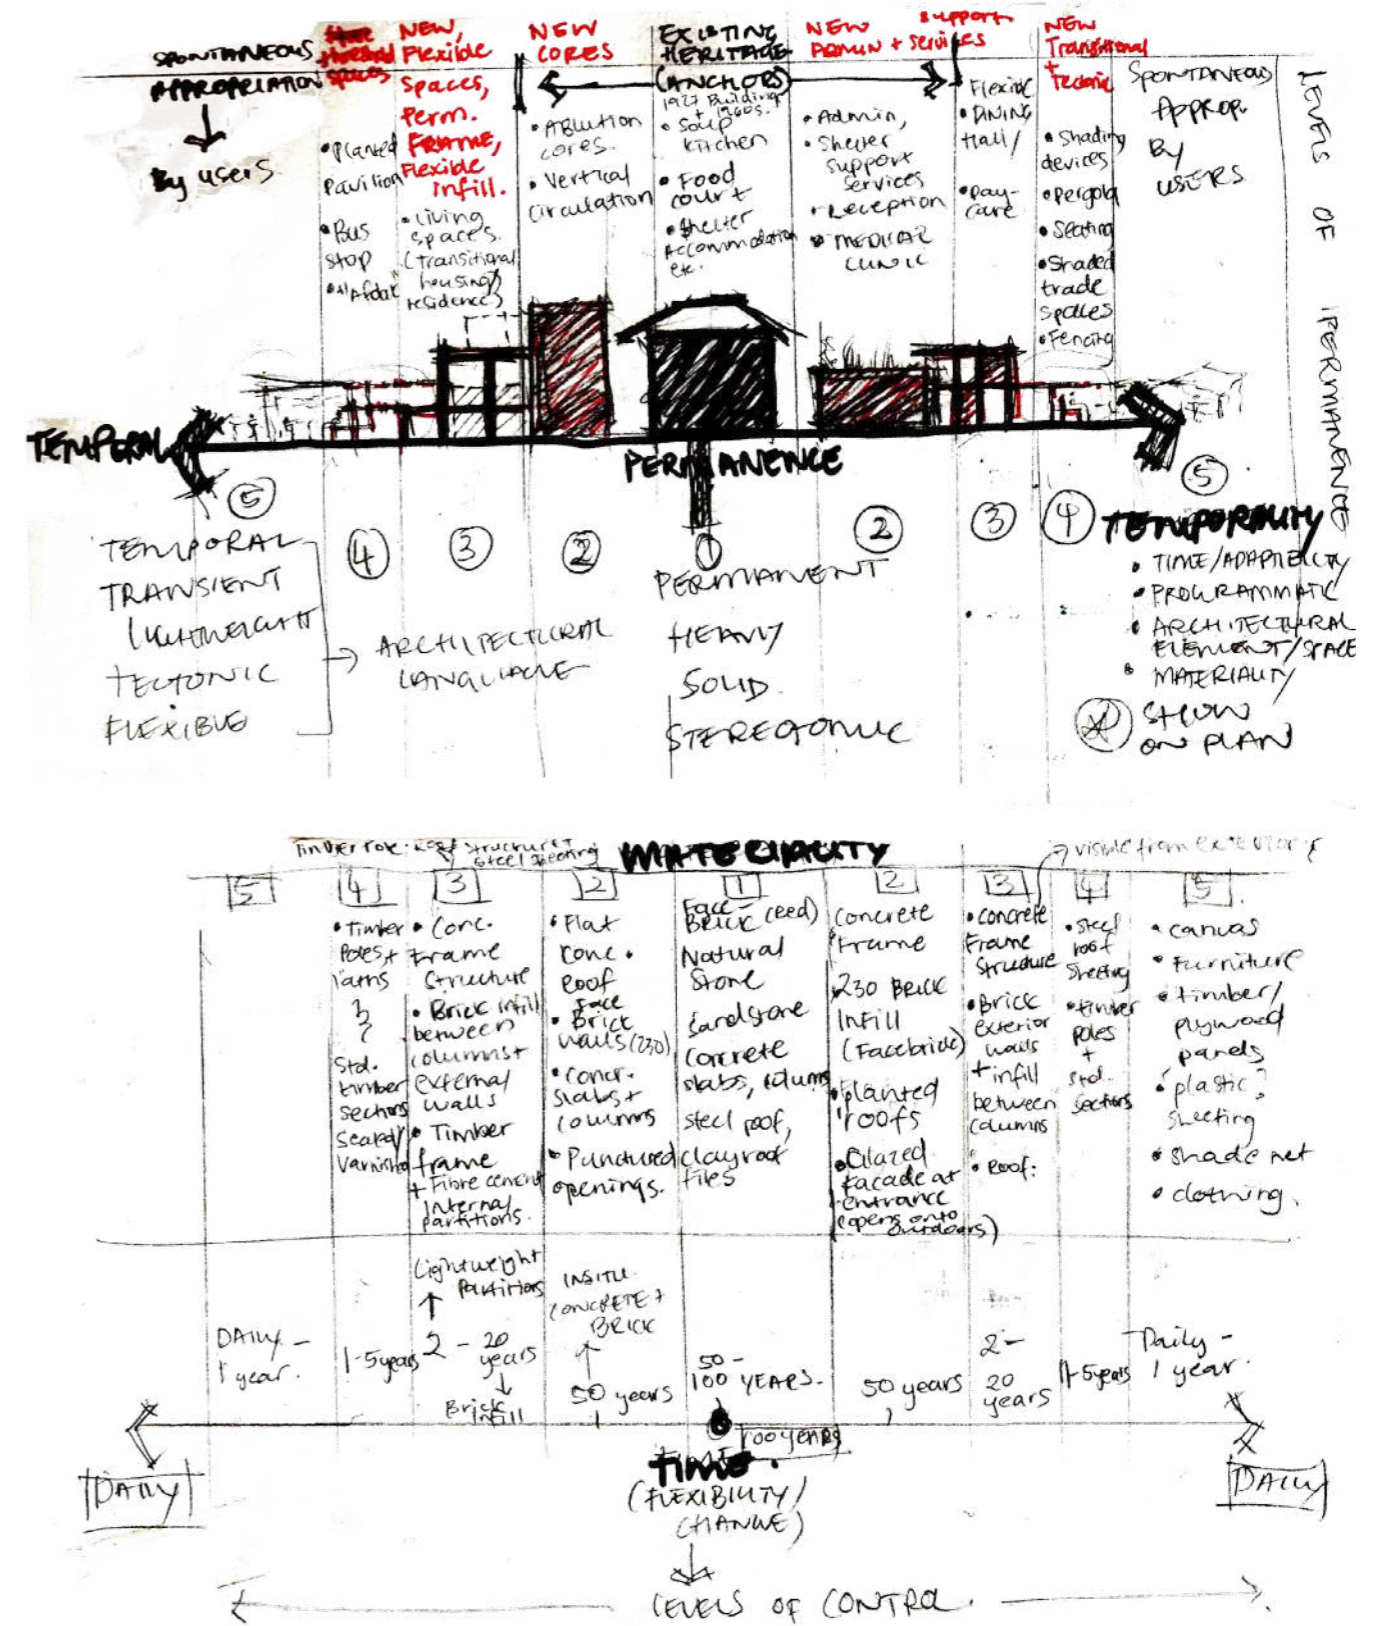 SPONTANEOUS
APPROPRIATION
By users
spaces
• Planted
Pavilion
• Bus
stop
• "Al Afdak"
NEW,
Flexible
Spaces,
Perm.
FRAME,
Flexible
Infill.
• Living
spaces.
(transitional
housing
residences)
NEW
CORES
• Ablution
cores.
• Vertical
Circulation
EXISTING
HERITAGE
(ANCHORS)
1927 Building
+ 1960s.
• Soup
kitchen
• Food
court
• Shelter
Accommodation
etc.
NEW
ADMIN + services
• Admin,
• Shelter
support
services
• Reception
• MEDICAL
CLINIC
support
Flexible
• DINING
Hall/
• Day-
care
NEW
Transitional
+
tectonic
• Shading
devices
• Pergola
• Seating
• Shaded
trade
spaces
• Fencing
SPONTANEOUS
APPROP.
By
USERS
LEVELS OF PERMANENCE
TEMPORAL
PERMANENCE
5
4
3
2
1
2
3
4
5
TEMPORAL
TRANSIENT
LIGHTWEIGHT
TECTONIC
FLEXIBLE
ARCHITECTURAL
LANGUAGE
PERMANENT
HEAVY
SOLID
STEREOTOMIC
TEMPORALITY
• TIME/ADAPTIBILITY
• PROGRAMMATIC
• ARCHITECTURAL
ELEMENT/SPACE
• MATERIALITY
SHOW
ON PLAN
Structure +
Steel sheeting
MATERIALITY
visible from exterior
5
4
3
2
1
2
3
4
5
• Timber
Poles +
Std.
timber
sections
Sealed/
Varnished
• Conc.
Frame
Structure
• Brick infill
between
columns +
external
walls
• Timber
frame
+ Fibre cement
internal
partitions.
• Flat
conc.
Roof
• Face
Brick
walls (230)
• Concr.
slabs +
columns
• Punctured
openings.
Face-
BRICK (red)
Natural
Stone
Sandstone
Concrete
slabs, columns
steel roof,
clay roof
tiles
Concrete
Frame
230 BRICK
INFILL
(Facebrick)
• Planted
roofs
• Glazed
facade at
entrance
(opens onto
outdoors)
• Concrete
Frame
Structure
• Brick
exterior
walls
+ infill
between
columns
• Roof:
• Steel
roof
Sheeting
• timber
poles
+
std.
sections
• canvas
• Furniture
• timber/
plywood
panels
• plastic?
sheeting
• Shade net
• clothing.
DAILY –
1 year.
1-5 years
Lightweight
Partitions
2 – 20
years
Brick
infill
INSITU
CONCRETE +
BRICK
50 years
50 –
100 YEARS.
50 years
2 –
20
years
1-5 years
Daily –
1 year.
100 YEARS
DAILY
TIME.
(FLEXIBILITY/
CHANGE)
DAILY
LEVELS OF CONTROL.